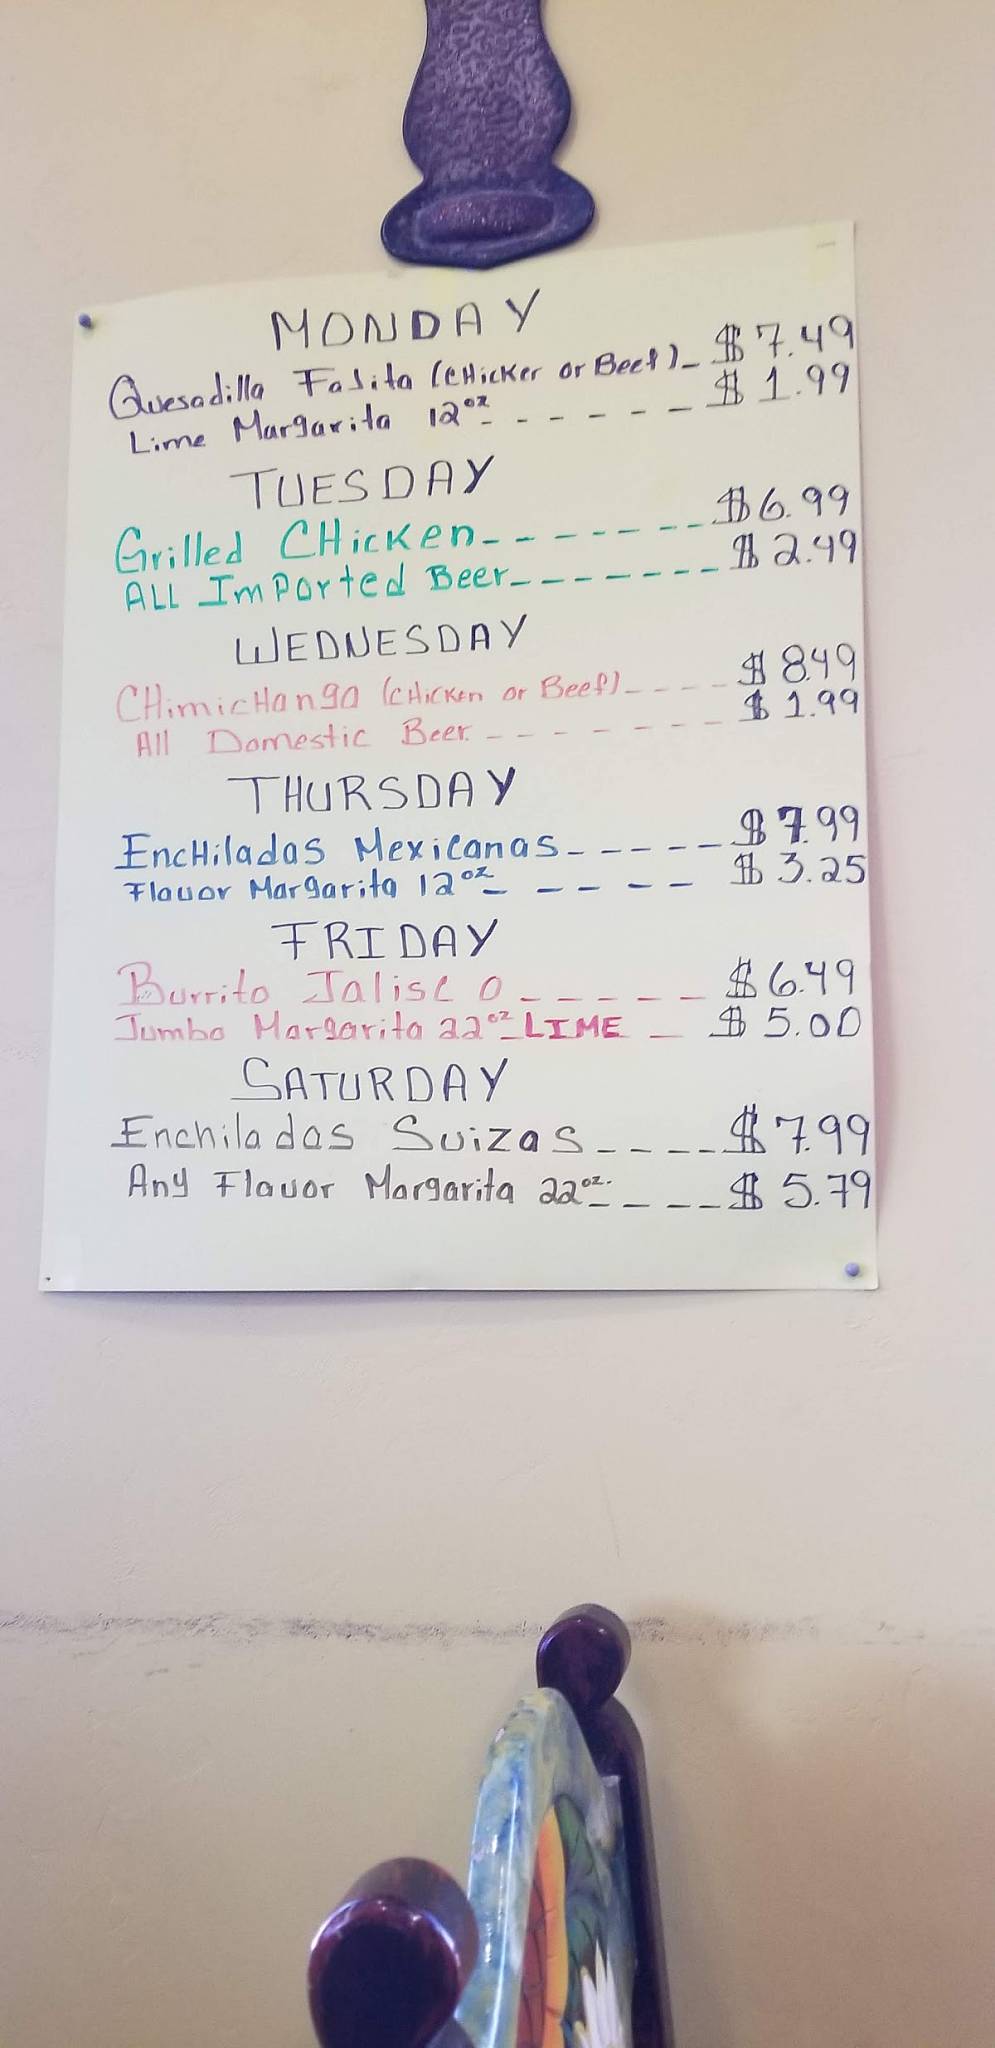 MONDAY
Quesadilla Fajita (CHicken or Beef)_ $7.49
Lime Margarita 12oz - - - - - - $1.99
TUESDAY
Grilled CHicken - - - - - - - $6.99
ALL ImPorted Beer - - - - - - - $2.49
WEDNESDAY
CHimicHanga (CHicken or Beef) - - - - $8.49
All Domestic Beer. - - - - - - - $1.99
THURSDAY
EncHiladas Mexicanas - - - - - $7.99
Flavor Margarita 12oz - - - - - $3.25
FRIDAY
Burrito Jalisco - - - - - $6.49
Jumbo Margarita 22oz LIME _ $5.00
SATURDAY
Enchiladas Suizas - - - - $7.99
Any Flavor Margarita 22oz. - - - - $5.79